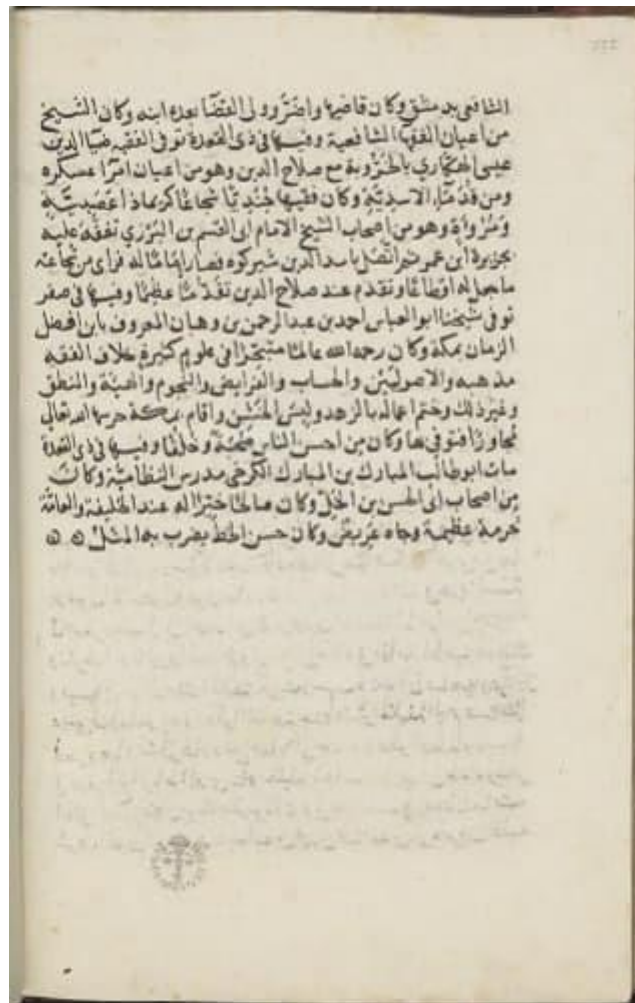 الشافعي بدمشق وكان قاضيها واضرّ وولى القضا بعده ابنه وكان الشيخ
من اعيان الفقها الشافعية وفيها في ذى القعدة توفى الفقيه ضيا الدين
عيسى الهكاري بالخروبة مع صلاح الدين وهو من اعيان امرا عسكره
ومن قدمآء الاسديّة وكان فقيها جُنديًا شجاعًا كريما ذا عصبيّة
ومُروأة وهو من اصحاب الشيخ الامام ابى القسم بن البزري تفقّه عليه
بجزيرة ابن عمر ثم اتّصل باسد الدين شيركوه فصار امامًا له فراى من شجاعته
ما جعل له اقطاعًا وتقدم عند صلاح الدين تقدّمًا عظيمًا وفيها في صفر
توفى شيخنا ابو العباس احمد بن عبد الرحمن بن وهبان المعروف بابن افضل
الزمان بمكة وكان رحمه الله عالمًا متبحّرًا في علوم كثيرة خلاف الفقه
مذهبه والاصوليْن والحساب والفرايض والنجوم والهيئة والمنطق
وغير ذلك وختم اعماله بالزهد ولبس الخشن واقام بمكة حرسها الله تعالى
مجاورًا فتوفى بها وكان من احسن الناس صحبةً وخلقًا وفيها في ذى القعدة
مات ابو طالب المبارك بن المبارك الكرخى مدرس النظاميّة وكان
من اصحاب ابى الحسن بن الخلّ وكان صالحًا خيّرًا له عند الخليفة والعامّة
حرمة عظيمة وجاه عريض وكان حسن الخط يضرب به المثل